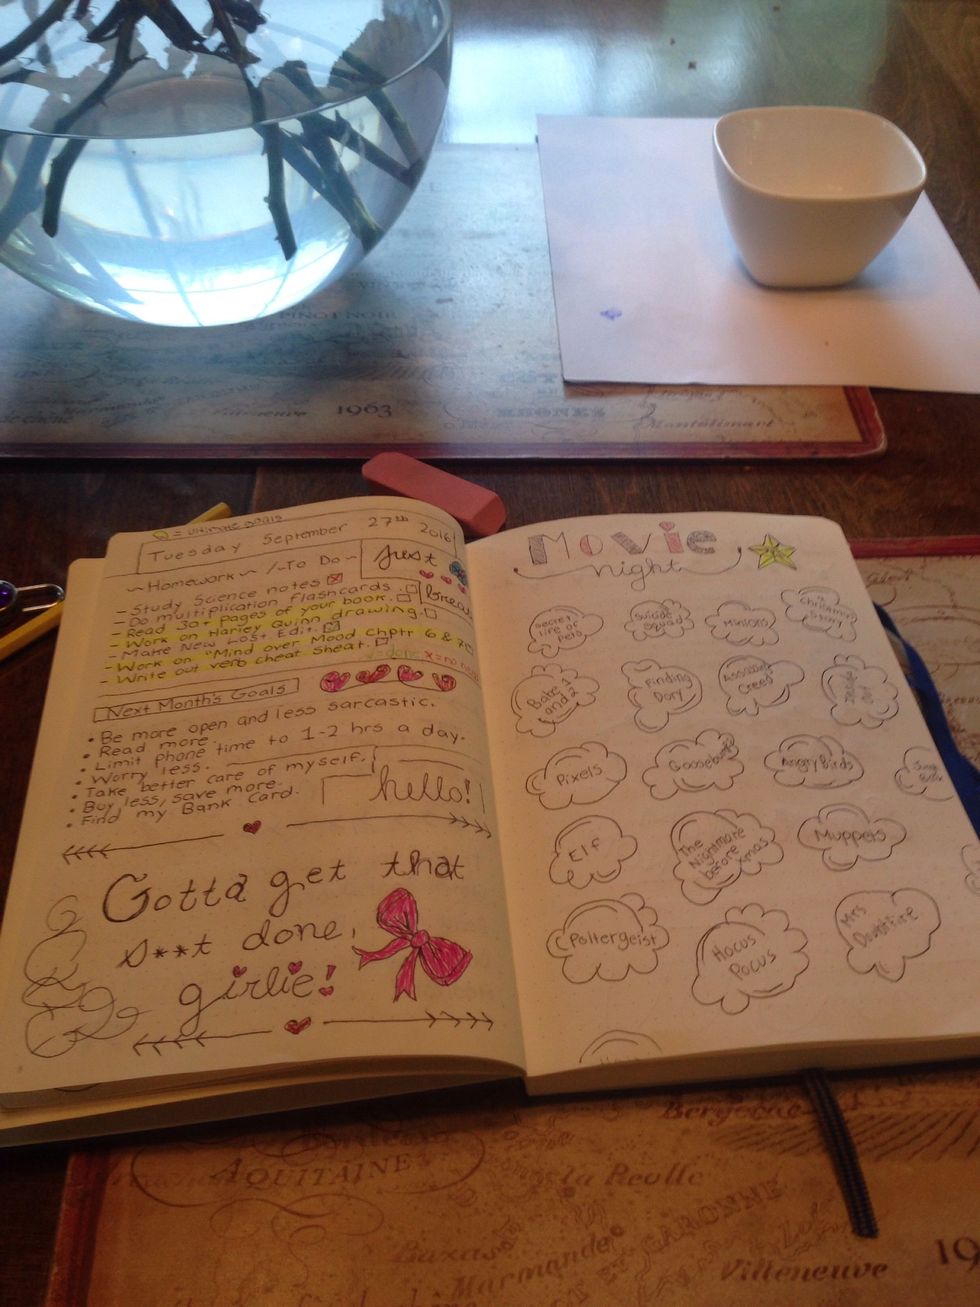 PINOT NOIR
1963
RHONES
Montelimart
= Ultimate goals
Tuesday September 27th 2016
~ Homework ~ /~To Do~
just
breathe
- Study Science notes
- Do multiplication flashcards.
- Read 30+ pages of your book.
- Work on Harley Quinn drawing.
- Make New Lost Edit.
- Work on "Mind over Mood chptr 6 & 7
- Write our verb cheat sheat.
✓=done x=no need
Next Month's Goals
• Be more open and less sarcastic.
• Read more
• Limit phone time to 1-2 hrs a day.
• Worry less.
• Take better care of myself.
• Buy less, save more.
• Find my Bank Card.
hello!
Gotta get that
s**t done,
girlie!
Movie
night
Secret life of Pets
Suicide Squad
Minions
a Christmas Story
Babe 1 and 2
Finding Dory
Assassins Creed
Inside Out
Pixels
Goosebumps
Angry Birds
Elf
The Nightmare before Xmas
Muppets
Poltergeist
Hocus Pocus
Mrs Doubtfire
Bergerac
AQUITAINE
la Reolle
GARONNE
Marmande
Villeneuve
19